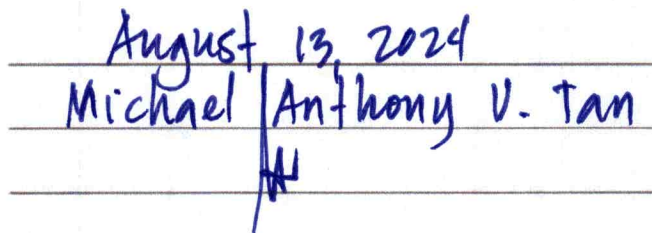 August 13, 2024
Michael Anthony V. Tan